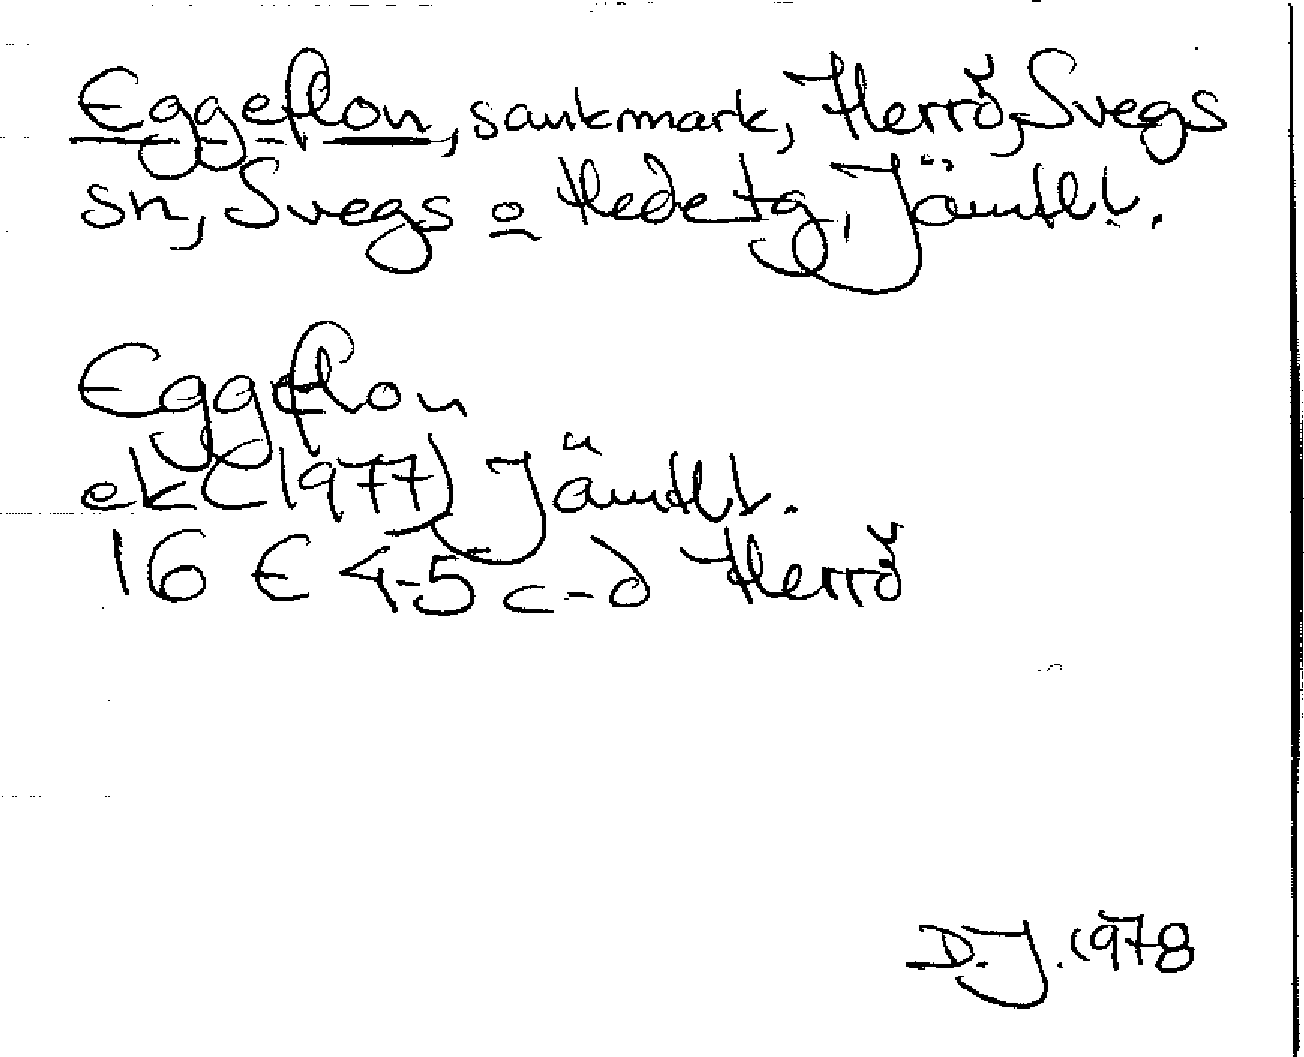 Eggeflon, sankmark, Herrö, Svegs
sn, Svegs o Hede tg, Jämtl.
Eggeflon
ek (1977) Jämtl.
16 E 4-5 c-d Herrö
D.J. 1978